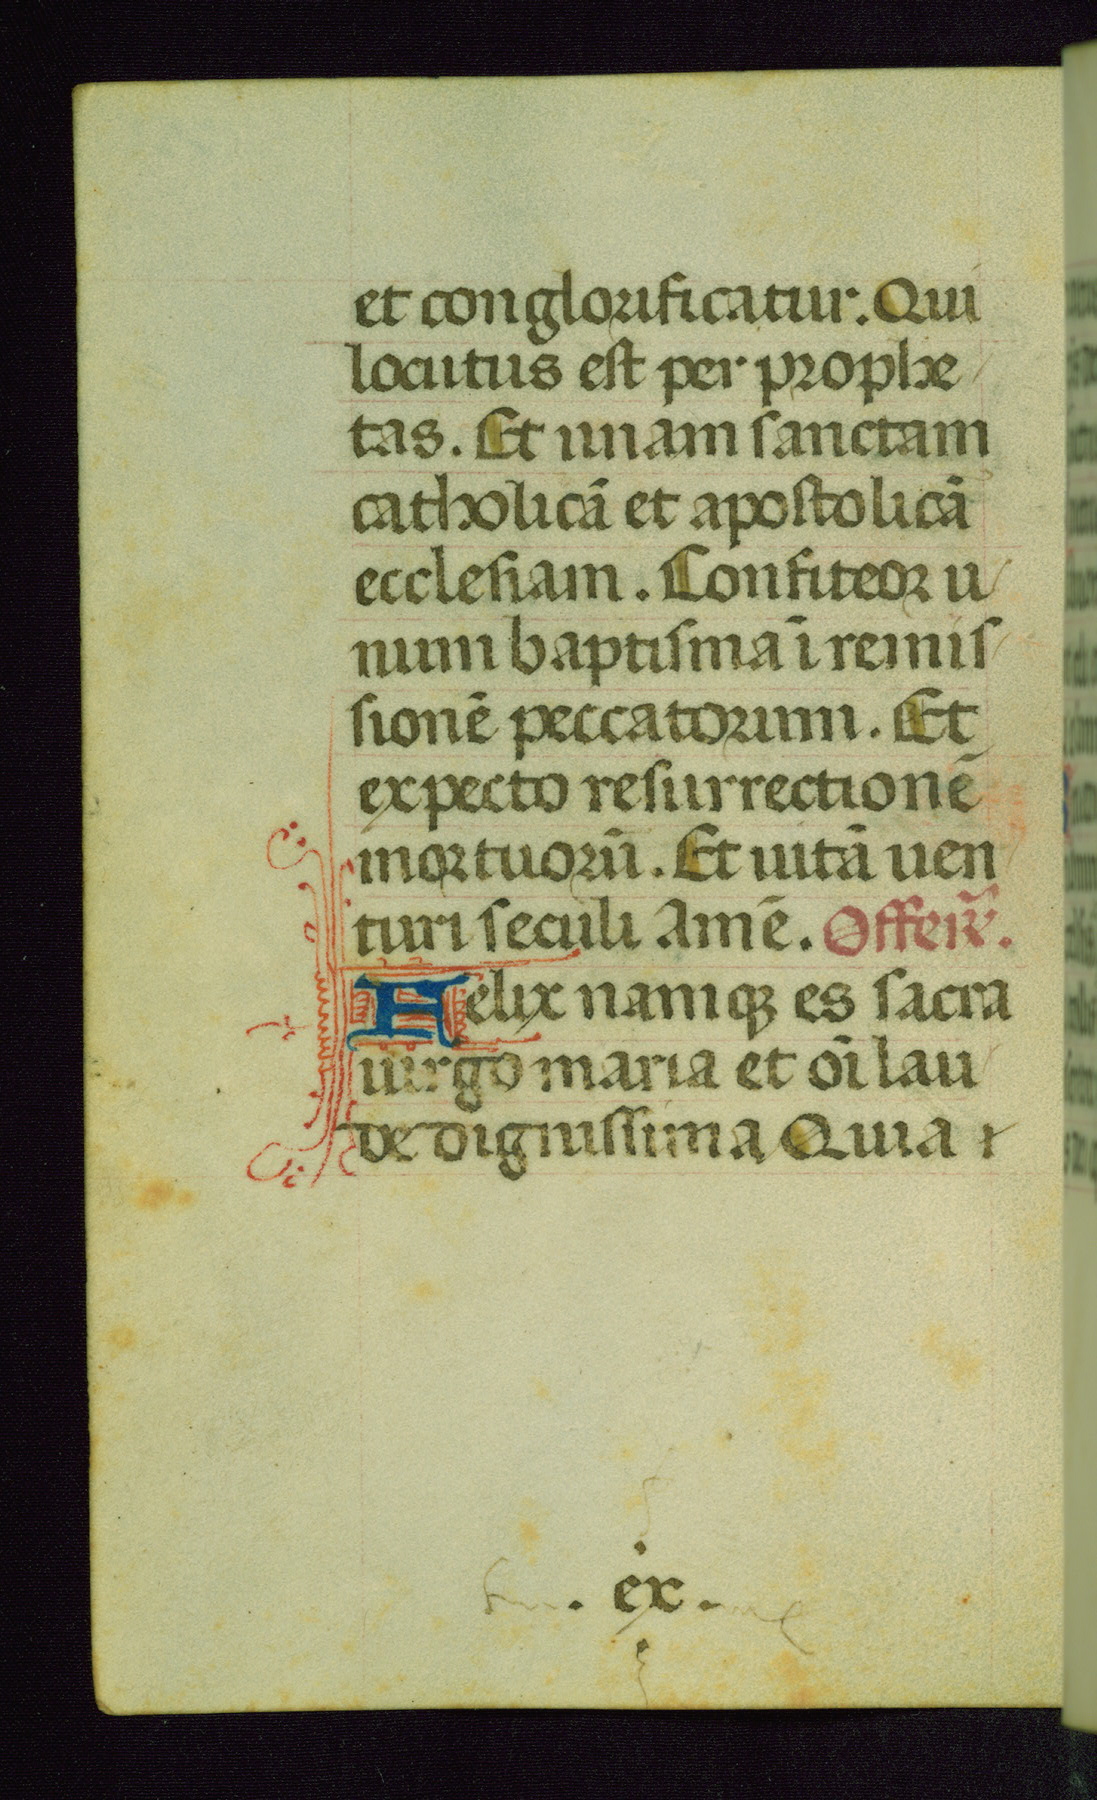 et conglorificatur. Qui
locutus est per prophe
tas. Et unam sanctam
catholicā et apostolicā
ecclesiam. Confiteor u
num baptisma ī remis
sionē peccatorum. Et
expecto resurrectionē
mortuorū. Et uitā uen
turi seculi Amē.
Felix namqꝫ es sacra
uirgo maria et oī lau
de dignissima Quia
. ex .